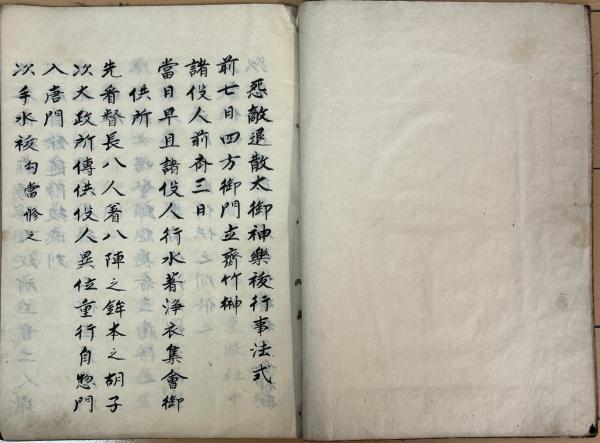 惡敵退散太御神樂後行事法式
前七日四方御門立齊竹榊
諸役人前斎三日
當日早旦諸役人行水著浄衣集會御
供所
先看督長八人著八陣之鉾本之胡子
次大政所傳供役人異位重行自惣門
入唐門
次手水祓勾當修之